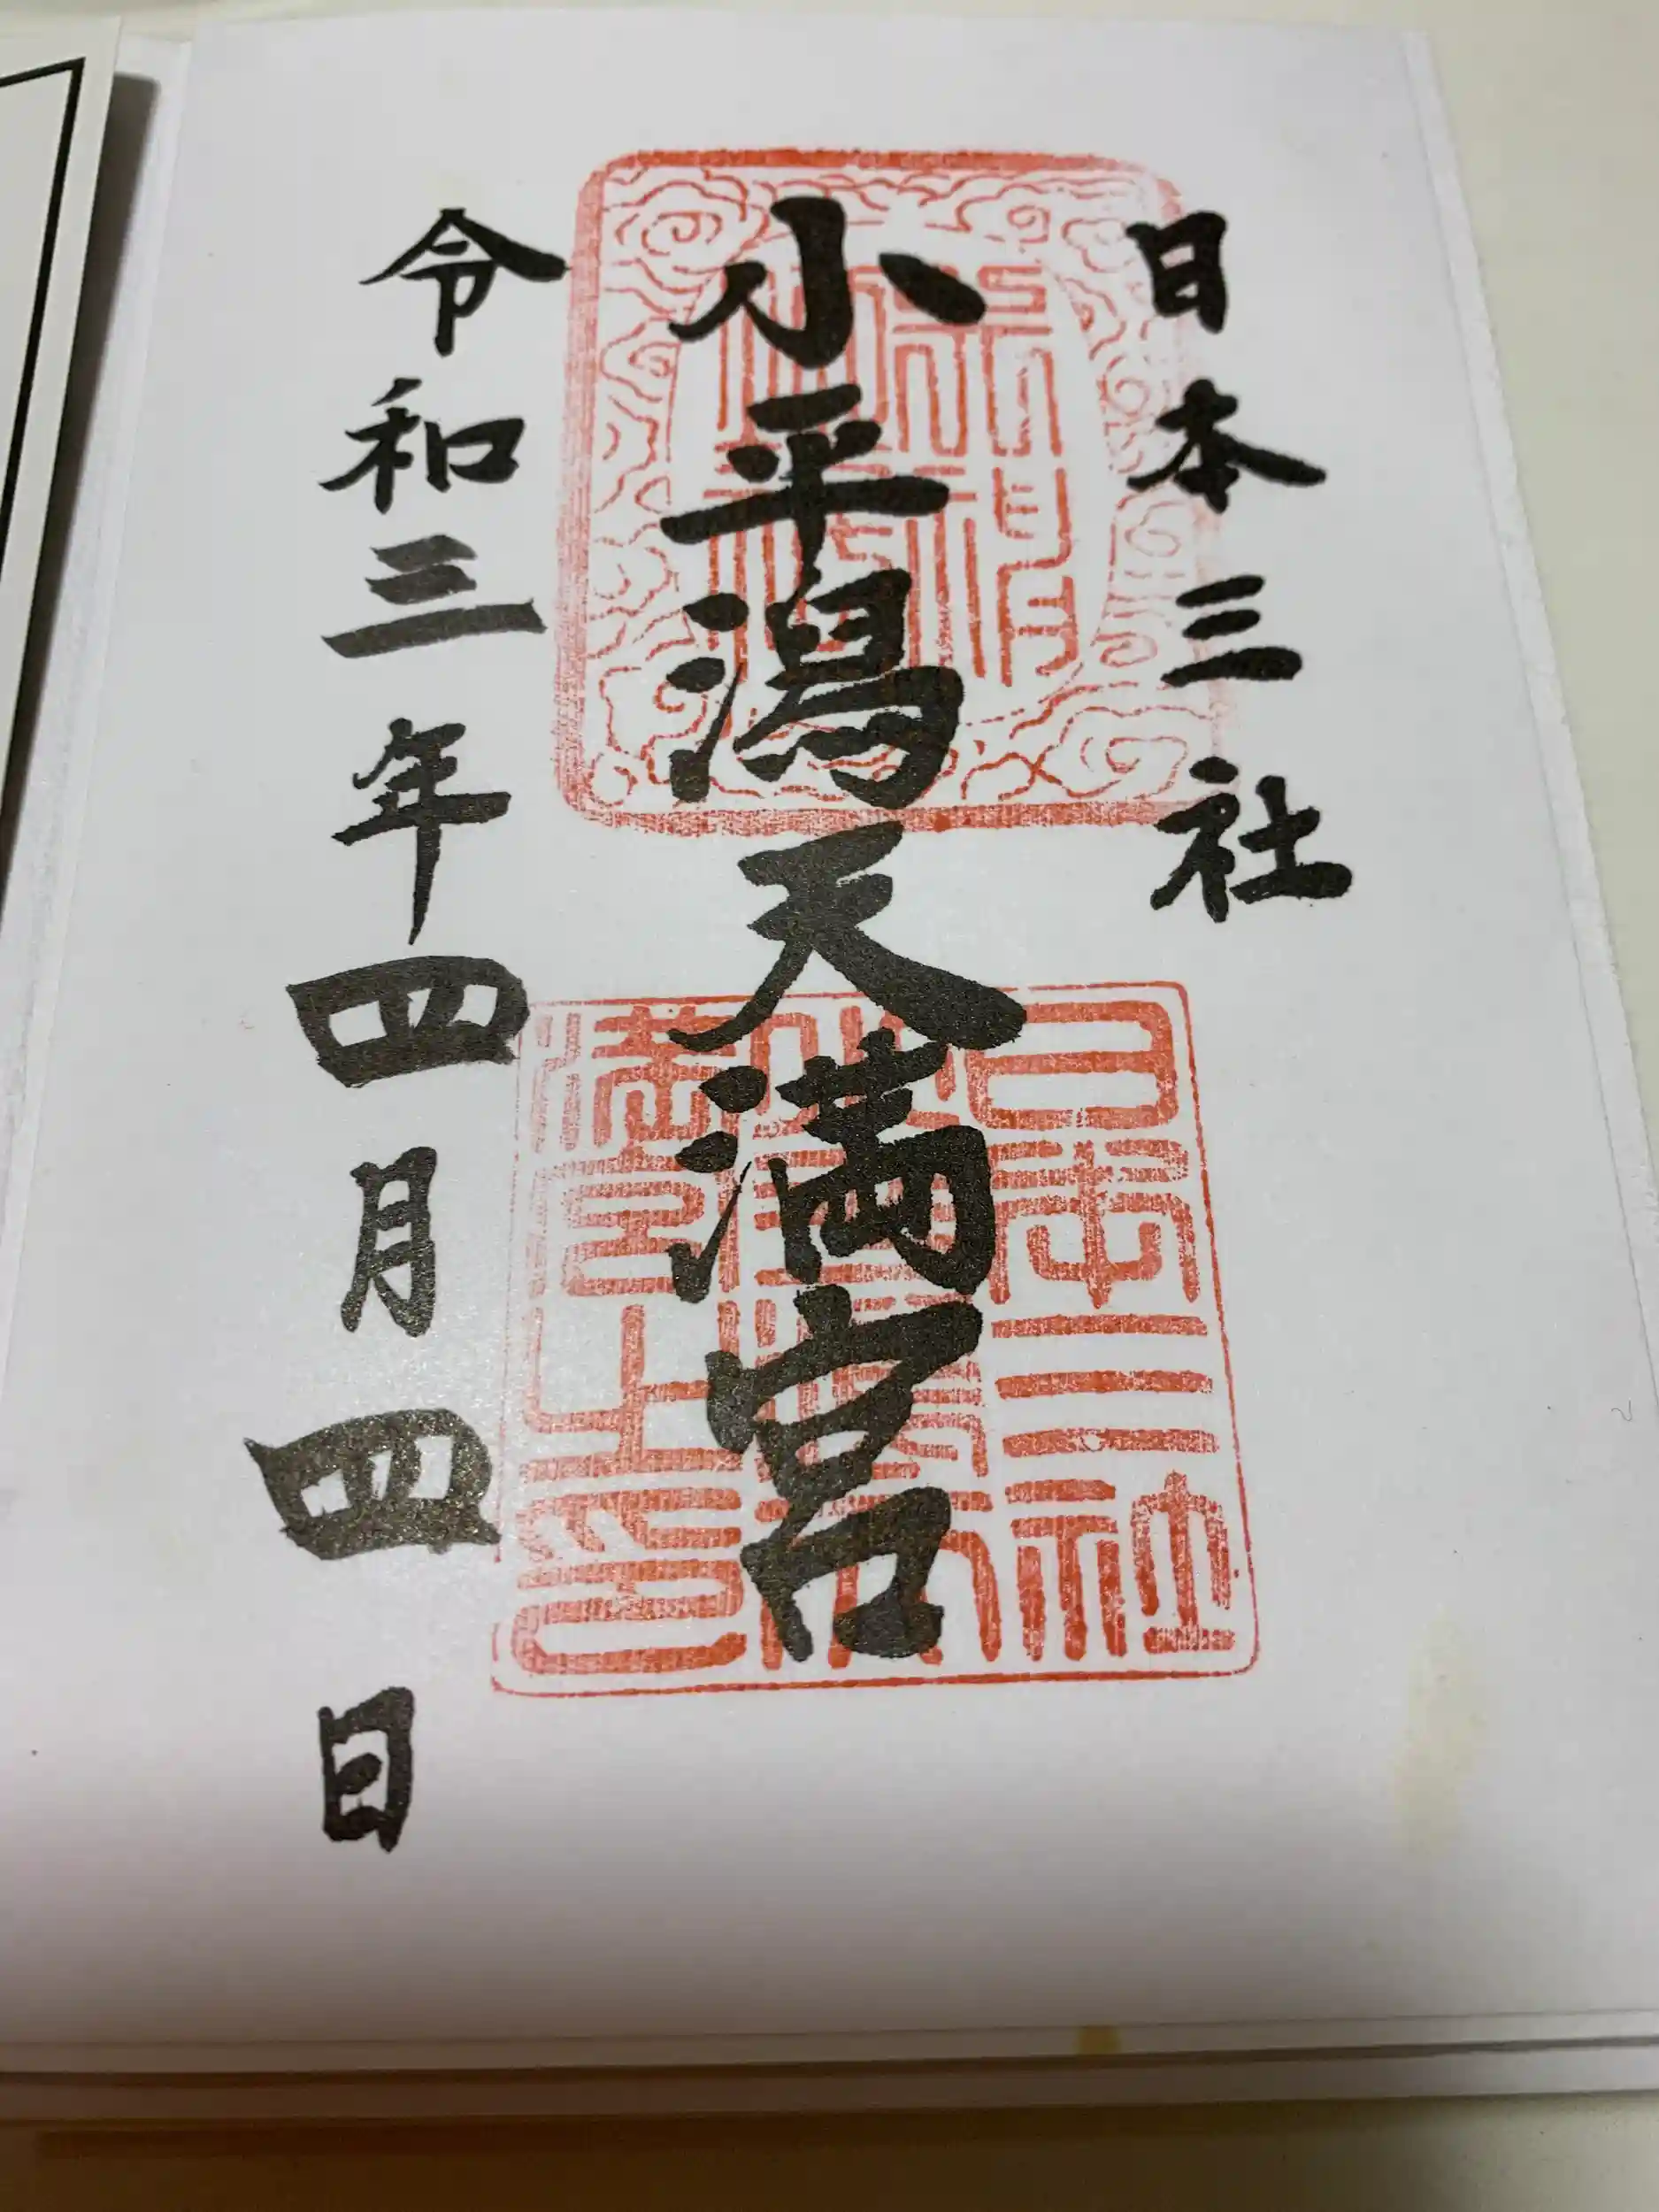 日本三社
小平潟天満宮
令和三年四月四日